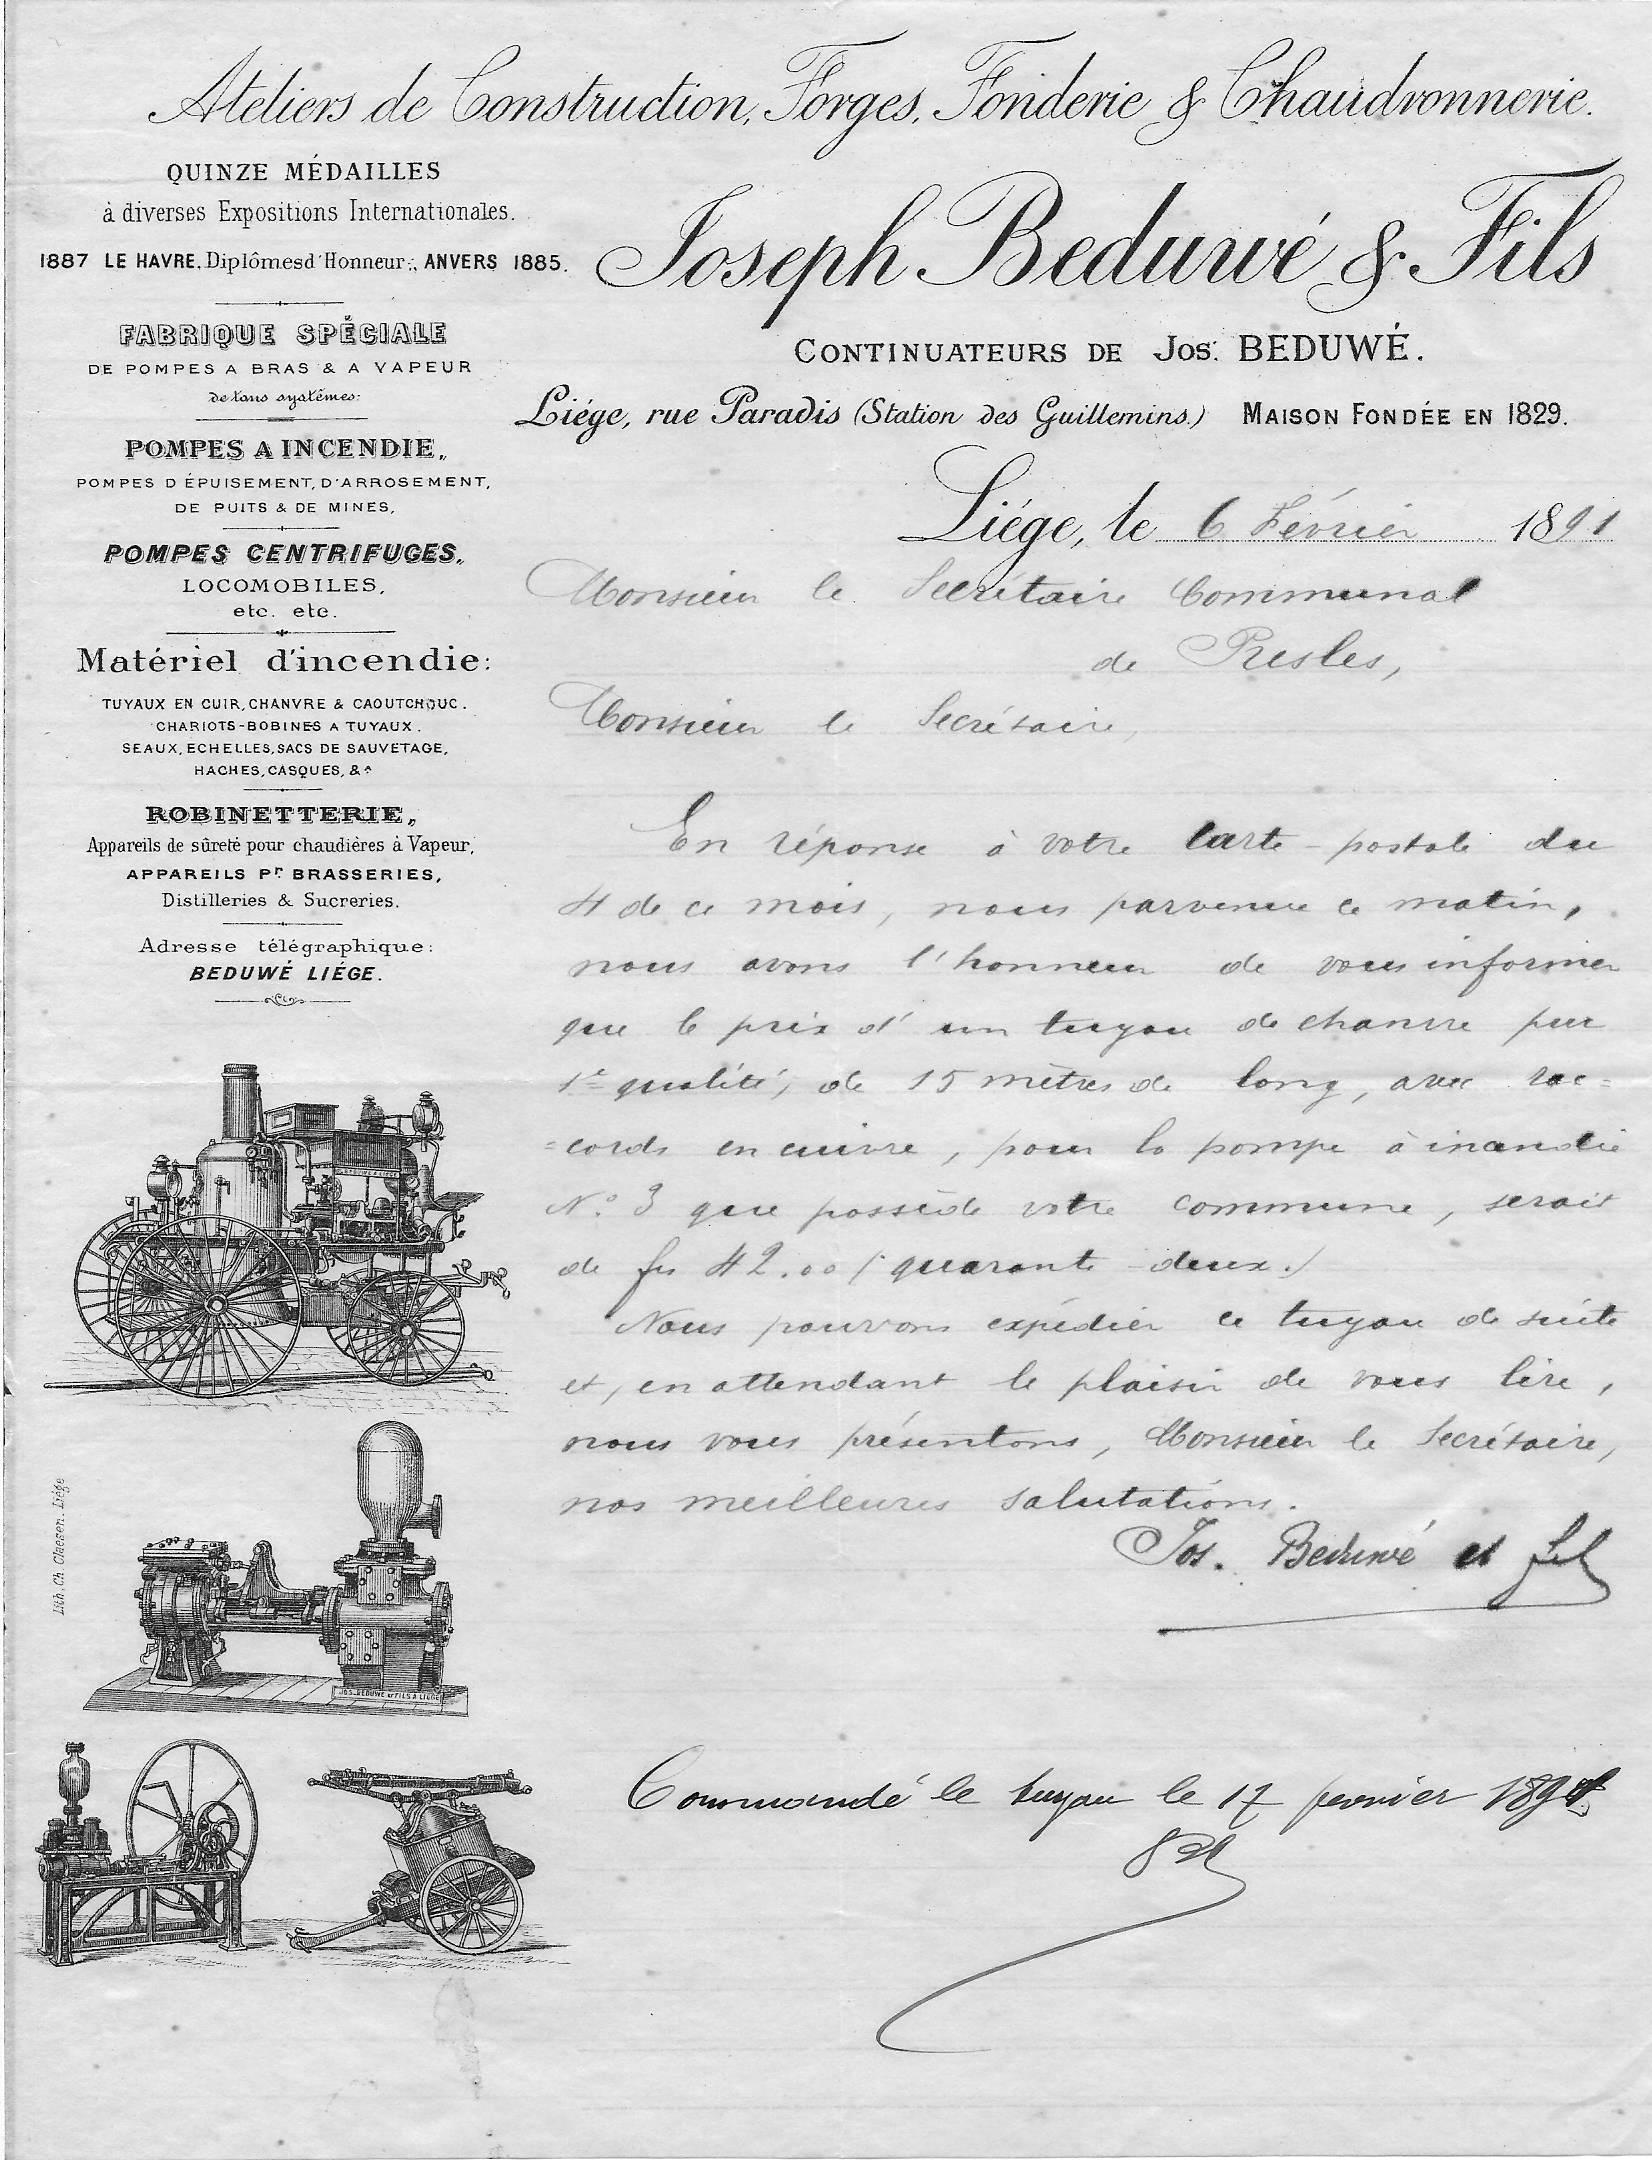 Ateliers de Construction, Forges, Fonderie & Chaudronnerie.
QUINZE MÉDAILLES
à diverses Expositions Internationales.
1887 LE HAVRE. Diplômes d'Honneur., ANVERS 1885.
Joseph Beduwé & Fils
CONTINUATEURS DE Jos. BEDUWÉ.
Liége, rue Paradis (Station des Guillemins.) MAISON FONDÉE EN 1829.
FABRIQUE SPÉCIALE
DE POMPES A BRAS & A VAPEUR
de tous systèmes:
POMPES A INCENDIE,
POMPES D'ÉPUISEMENT, D'ARROSEMENT,
DE PUITS & DE MINES,
POMPES CENTRIFUGES,
LOCOMOBILES,
etc. etc.
Matériel d'incendie:
TUYAUX EN CUIR, CHANVRE & CAOUTCHOUC.
CHARIOTS-BOBINES A TUYAUX.
SEAUX, ECHELLES, SACS DE SAUVETAGE,
HACHES, CASQUES, &ª
ROBINETTERIE,
Appareils de sûreté pour chaudières à Vapeur,
APPAREILS Pr BRASSERIES,
Distilleries & Sucreries.
Adresse télégraphique:
BEDUWÉ LIÉGE.
Liége, le 6 Février 1891
Monsieur le Secrétaire Communal
de Presles,
Monsieur le Secrétaire,
En réponse à votre carte-postale du
4 de ce mois, nous parvenue ce matin,
nous avons l'honneur de vous informer
que le prix d'un tuyau de chanvre pur
1e qualité, de 15 mètres de long, avec rac=
=cords en cuivre, pour la pompe à incendie
N° 3 que possède votre commune, serait
de frs 42.00 (quarante-deux.)
Nous pouvons expédier ce tuyau de suite
et, en attendant le plaisir de vous lire,
nous vous présentons, Monsieur le Secrétaire,
nos meilleures salutations.
Jos. Beduwé et fils
Lith. Ch. Claesen. Liége
JOS. BEDUWÉ ET FILS A LIÉGE
Commandé le tuyau le 17 fevrier 1891